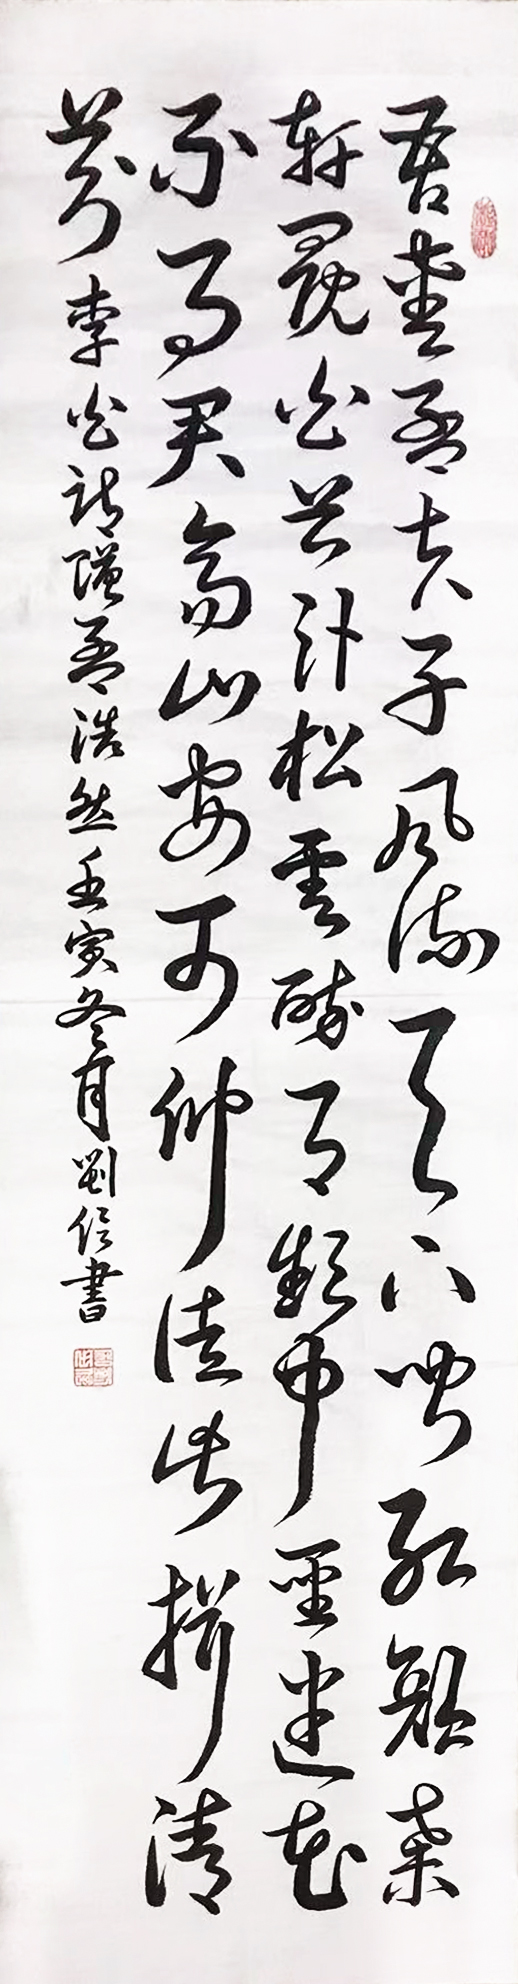 吾愛孟夫子風流天下聞紅顏棄
軒冕白首卧松雲醉月頻中聖迷花
不事君高山安可仰徒此揖清
芬 李白詩贈孟浩然壬寅冬月劉信書